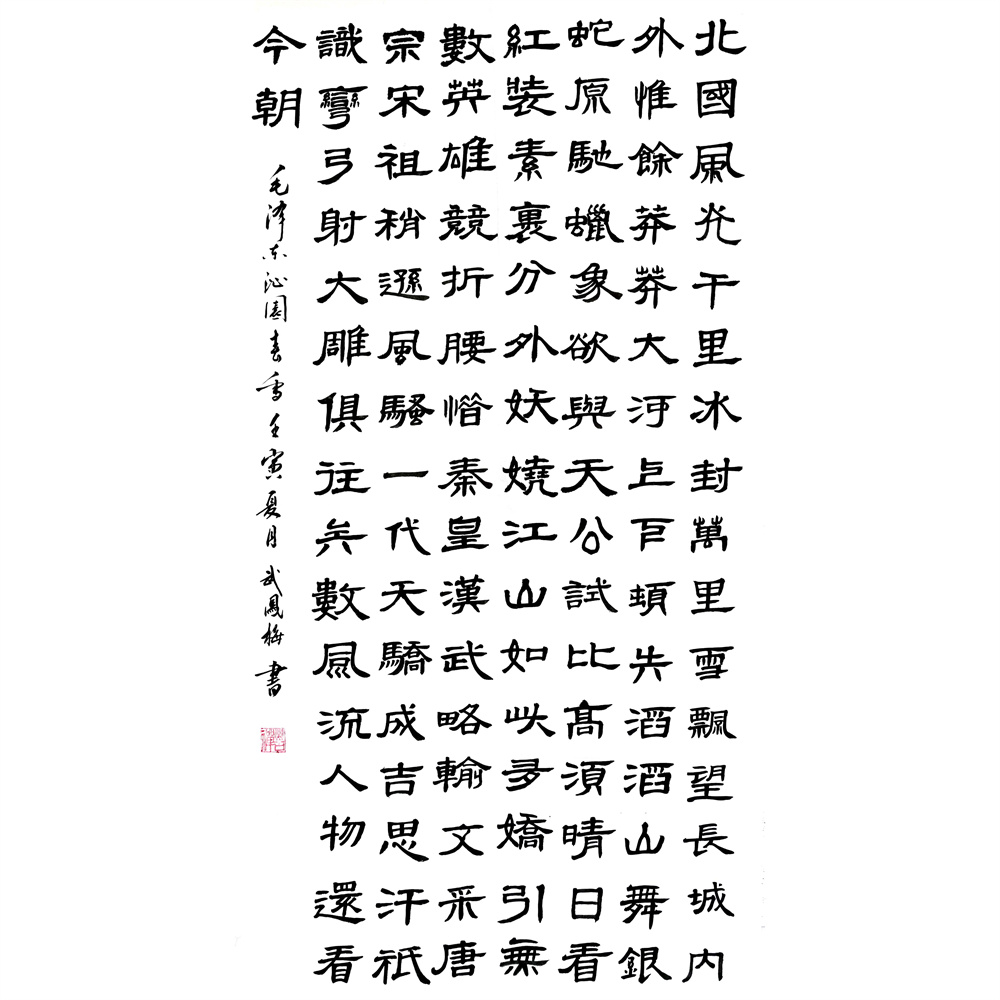 北國風光千里冰封萬里雪飄望長城內
外惟餘莽莽大河上下頓失滔滔山舞銀
蛇原馳蠟象欲與天公試比高須晴日看
紅裝素裹分外妖嬈江山如此多嬌引無
數英雄競折腰惜秦皇漢武略輸文采唐
宗宋祖稍遜風騷一代天驕成吉思汗祇
識彎弓射大雕俱往矣數風流人物還看
今朝
毛泽东沁園春雪壬寅夏月武鳳梅書